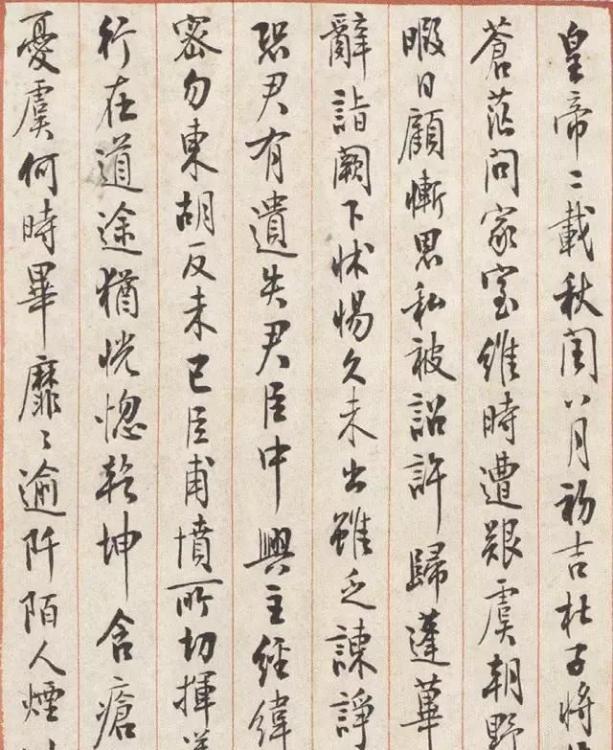 皇帝二載秋閏八月初吉杜子將
蒼茫問家室維時遭艱虞朝野
暇日顧慚恩私被詔許歸蓬蓽
辭詣闕下怵惕久未出雖乏諫諍
恐君有遺失君臣中興主經緯
密勿東胡反未已臣甫憤所切揮
行在道途猶恍惚乾坤含瘡
憂虞何時畢靡〻逾阡陌人煙